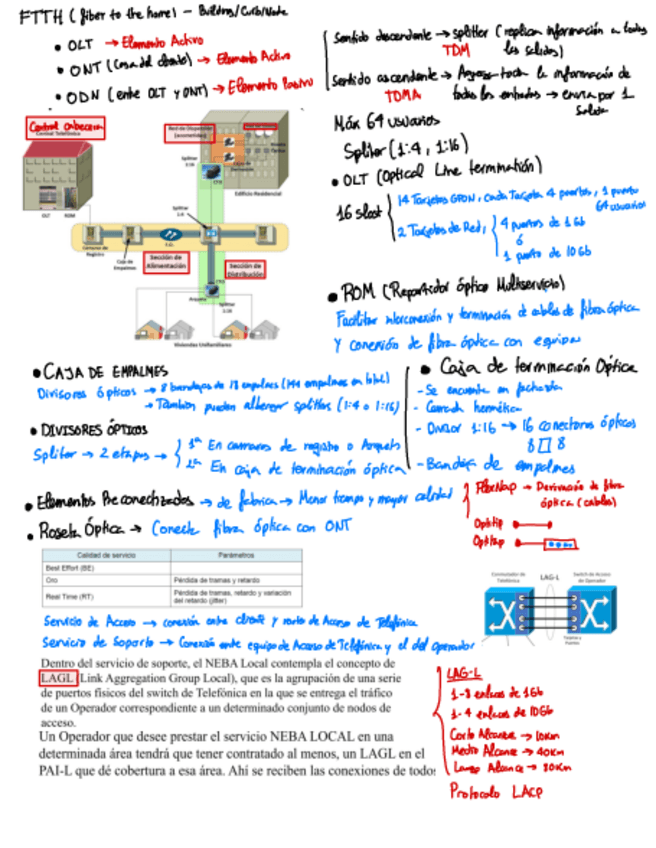 FTTH (fiber to the home) - Building/Curb/Node
• OLT → Elemento Activo
• ONT (Casa del cliente) → Elemento Activo
• ODN (entre OLT y ONT) → Elemento Pasivo
Sentido descendente → splitter (replica información a todas las salidas)
TDM
Sentido ascendente → toda la información de
TDMA todas las entradas → envia por 1
Salida
Máx 64 usuarios
Splitter (1:4, 1:16)
• OLT (Optical Line termination)
16 slost
14 Tarjetas GPON, cada Tarjeta 4 puertos, 1 puerto
64 usuarios
2 Tarjetas de Red,
4 puertos de 1 Gb
ó
1 puerto de 10 Gb
Central cabecera
Central Telefónica
Red de Dispersión
(acometida)
Splitter
1:16
CTO
Edificio Residencial
OLT
ROM
Splitter
1:4
Cámaras de
Registro
Caja de
Empalmes
Sección de
Alimentación
Sección de
Distribución
Arqueta
CTO
Splitter
1:16
Viviendas Unifamiliares
• ROM (Repartidor óptico Multiservicio)
Facilitar interconexión y terminación de cables de fibra óptica
y conexión de fibra óptica con equipos
• CAJA DE EMPALMES
Divisores ópticos → 8 bandejas de 18 empalmes (144 empalmes en total)
→ También pueden albergar splitters (1:4 o 1:16)
• DIVISORES ÓPTICOS
Splitter → 2 etapas →
1ª En camaras de registro o Arqueta
2ª En caja de terminación óptica
• Caja de terminación Óptica
- Se encuentra en fachada
- Cerrada hermética
- Divisor 1:16 → 16 conectores ópticos
8 8
- Bandeja de empalmes
• Elementos Preconectorizados → de fabrica → Menor tiempo y mayor calidad
FlexNap → Derivación de fibra
óptica (cables)
Optitip
Optitap
• Roseta Óptica → Conecta fibra óptica con ONT
Calidad de servicio Parámetros
Best Effort (BE)
Oro Pérdida de tramas y retardo
Real Time (RT) Pérdida de tramas, retardo y variación
del retardo (jitter)
Conmutador de
Telefónica
LAG-L
Switch de Acceso
de Operador
Tarjeta y
Puertos
Servicio de Acceso → conexión entre cliente y nodo de Acceso de Telefónica
Servicio de Soporte → Conexión entre equipo de Acceso de Telefónica y el del operador
Dentro del servicio de soporte, el NEBA Local contempla el concepto de
LAGL (Link Aggregation Group Local), que es la agrupación de una serie
de puertos físicos del switch de Telefónica en la que se entrega el tráfico
de un Operador correspondiente a un determinado conjunto de nodos de
acceso.
Un Operador que desee prestar el servicio NEBA LOCAL en una
determinada área tendrá que tener contratado al menos, un LAGL en el
PAI-L que dé cobertura a esa área. Ahí se reciben las conexiones de todos
LAG-L
1-8 enlaces de 1Gb
1-4 enlaces de 10Gb
Corto Alcance → 10Km
Medio Alcance → 40Km
Largo Alcance → 80Km
Protocolo LACP